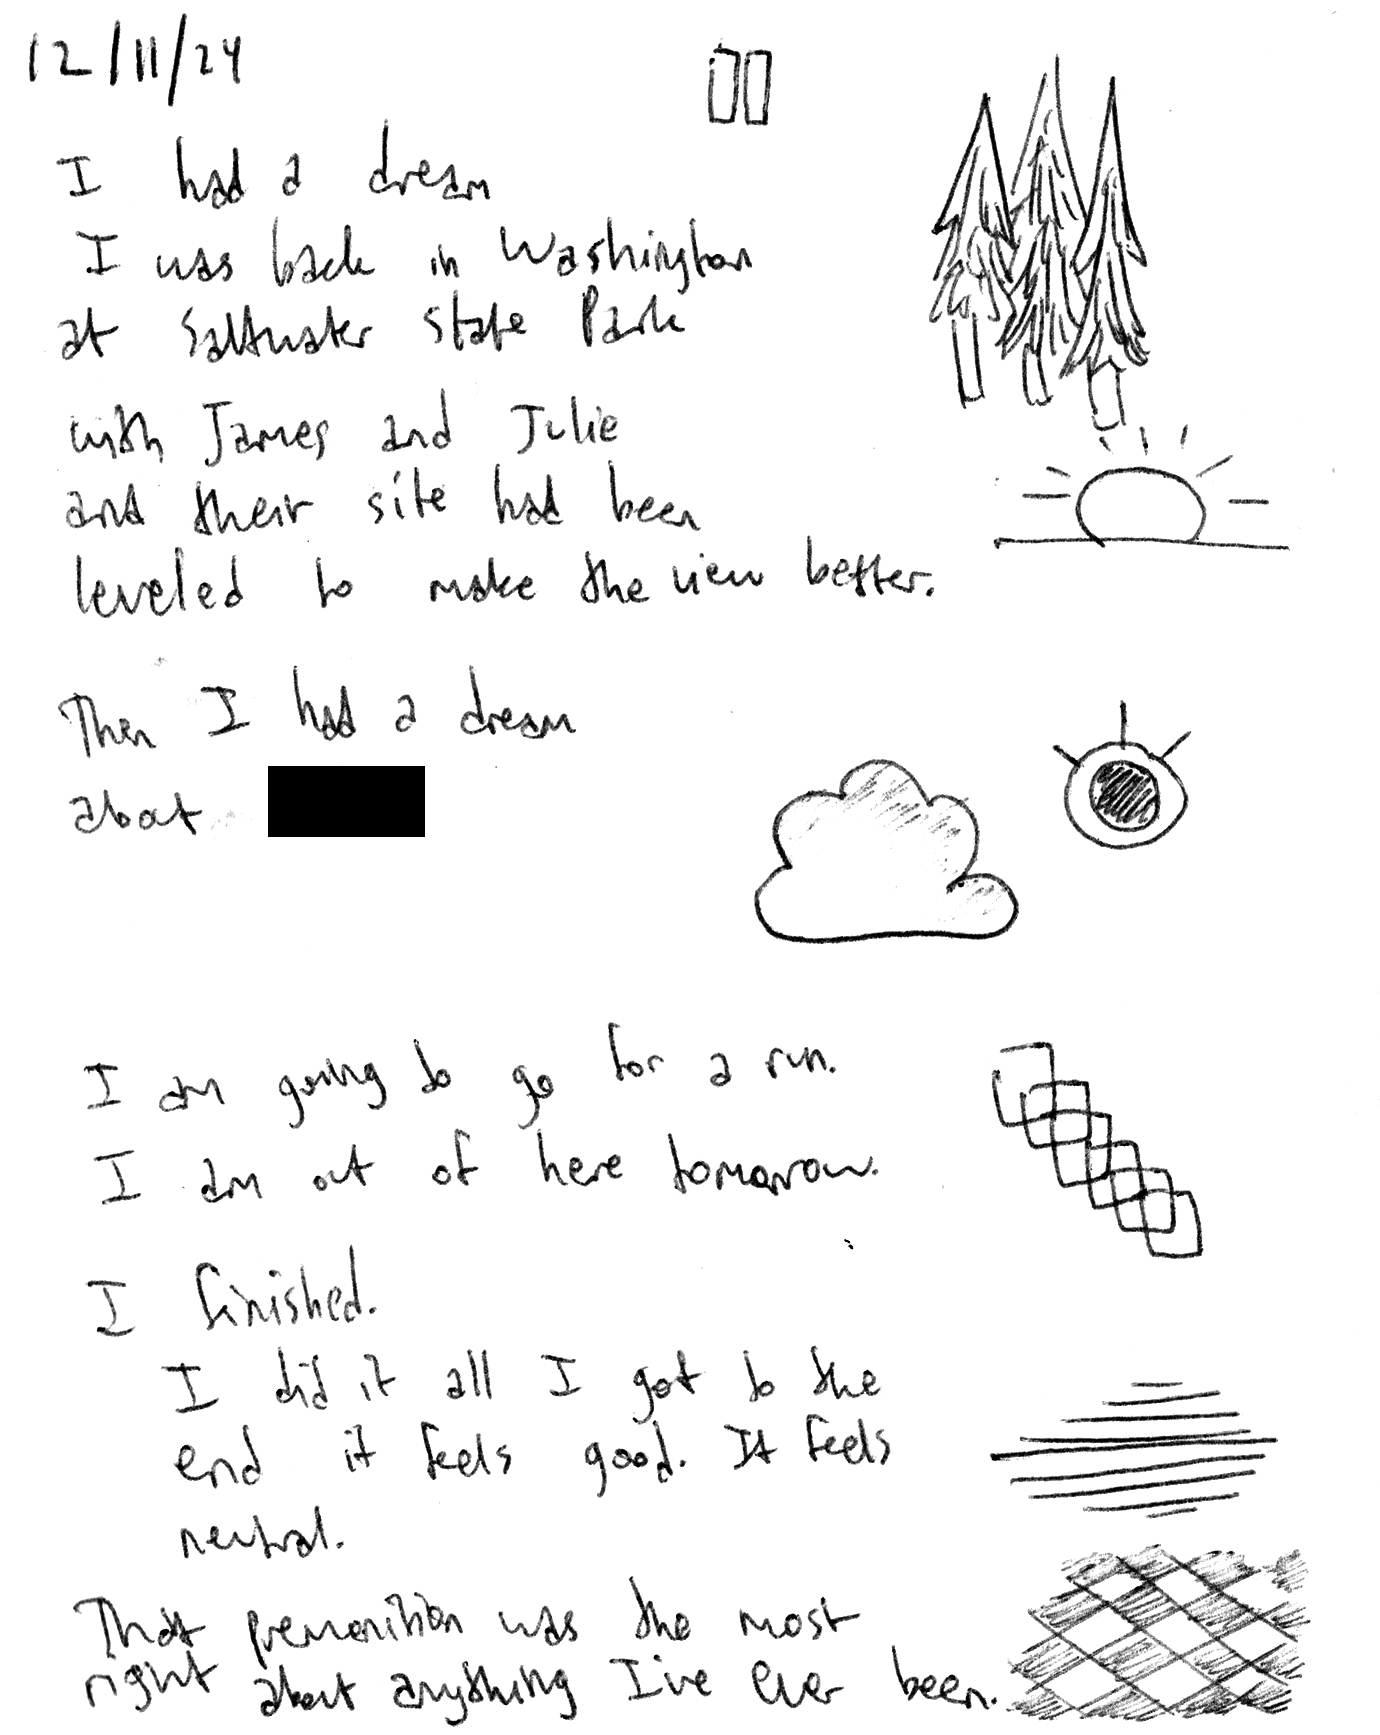 12/11/24
I had a dream
I was back in Washington
at Saltwater State Park
with James and Julie
and their site had been
leveled to make the view better.
Then I had a dream
about
I am going to go for a run.
I am out of here tomorrow.
I finished.
I did it all I got to the
end it feels good. It feels
neutral.
That premonition was the most
right about anything I've ever been.